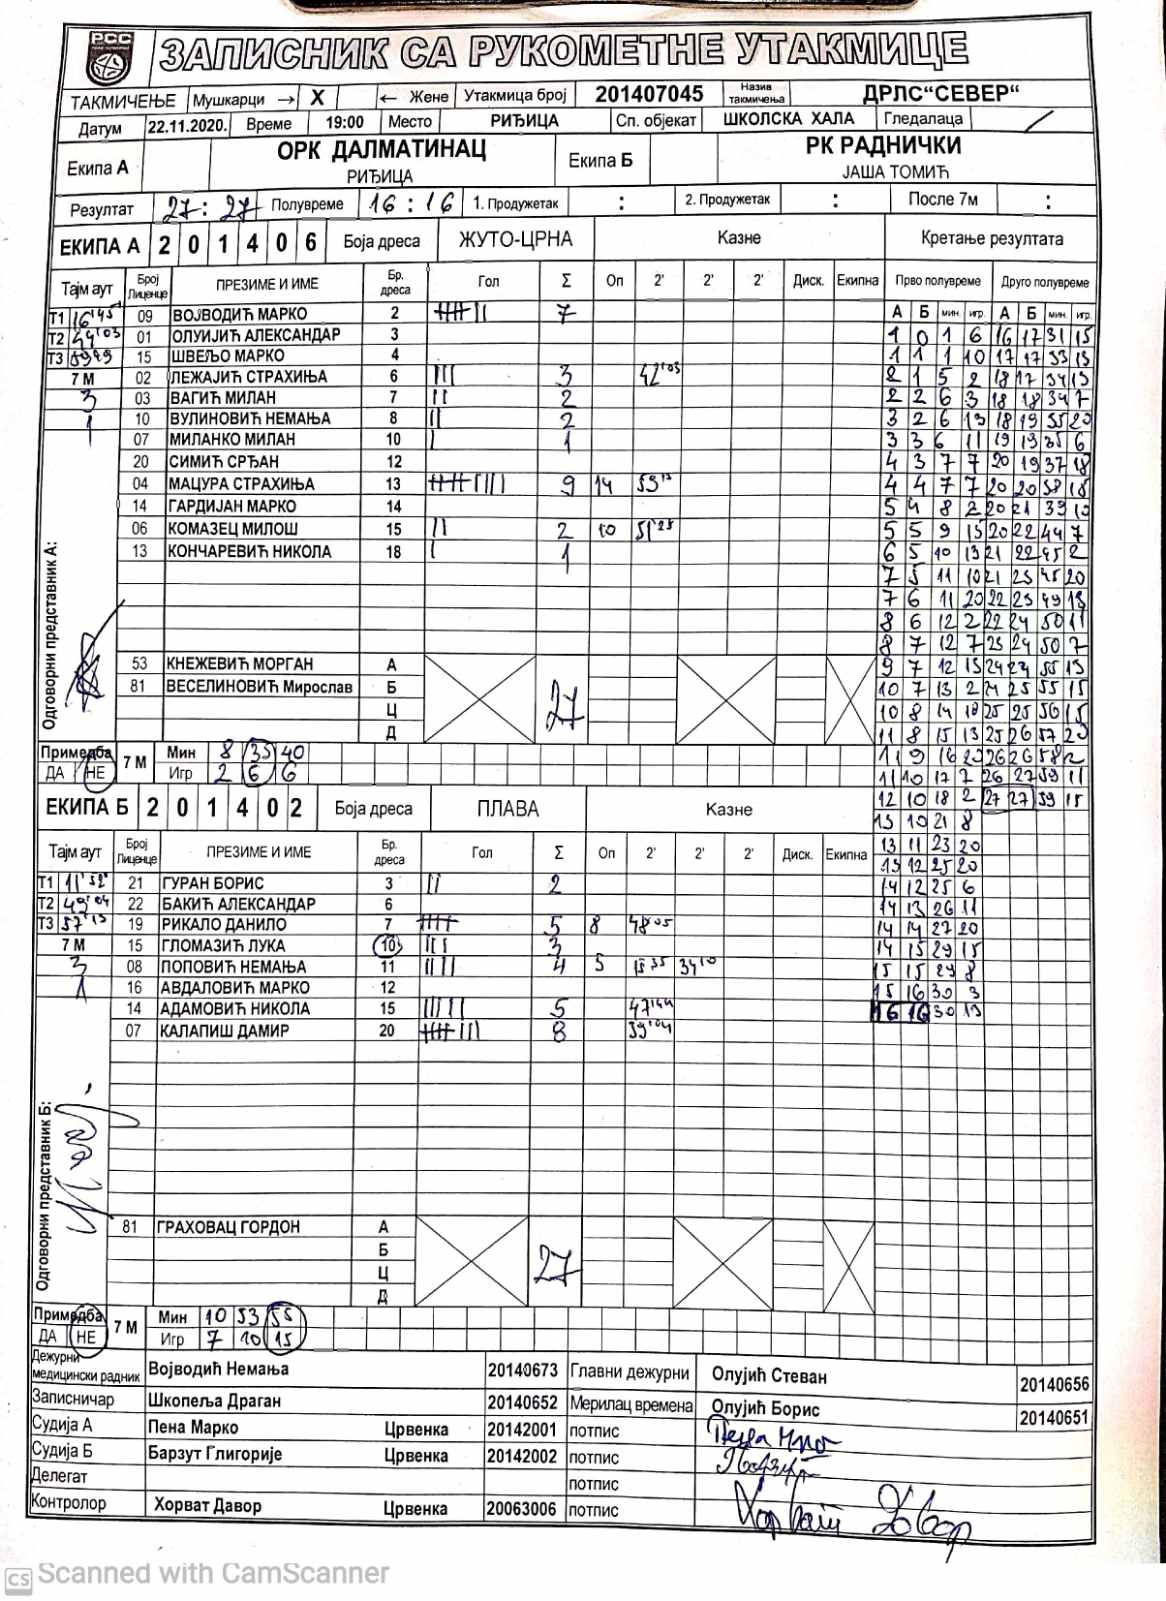 РСС
ЗАПИСНИК СА РУКОМЕТНЕ УТАКМИЦЕ
ТАКМИЧЕЊЕ Мушкарци → X ← Жене Утакмица број 201407045 Назив такмичења ДРЛС“СЕВЕР“
Датум 22.11.2020. Време 19:00 Место РИЂИЦА Сп. објекат ШКОЛСКА ХАЛА Гледалаца /
Екипа А ОРК ДАЛМАТИНАЦ Екипа Б РК РАДНИЧКИ
РИЂИЦА ЈАША ТОМИЋ
Резултат 27:27 Полувреме 16:16 1. Продужетак : 2. Продужетак : После 7м :
ЕКИПА А 2 0 1 4 0 6 Боја дреса ЖУТО-ЦРНА Казне Кретање резултата
Тајм аут Број Лиценце ПРЕЗИМЕ И ИМЕ Бр. дреса Гол Σ Оп 2' 2' 2' Диск. Екипна Прво полувреме Друго полувреме
А Б мин. игр. А Б мин. игр.
Т1 16'45 09 ВОЈВОДИЋ МАРКО 2 7
Т2 44'03 01 ОЛУИЈИЋ АЛЕКСАНДАР 3 1 0 1 6 16 17 31 15
Т3 15 ШВЕЉО МАРКО 4 1 1 1 10 17 17 33 13
7 М 02 ЛЕЖАЈИЋ СТРАХИЊА 6 III 3 42'03 2 1 5 2 18 17 34 13
3 03 ВАГИЋ МИЛАН 7 II 2 2 2 6 3 18 18 34 7
1 10 ВУЛИНОВИЋ НЕМАЊА 8 II 2 3 2 6 13 18 19 35 20
07 МИЛАНКО МИЛАН 10 I 1 3 3 6 11 19 19 35 6
20 СИМИЋ СРЂАН 12 4 3 7 7 20 19 37 18
04 МАЦУРА СТРАХИЊА 13 9 14 53'13 4 4 7 7 20 20 38 18
14 ГАРДИЈАН МАРКО 14 5 4 8 2 20 21 39 10
06 КОМАЗЕЦ МИЛОШ 15 II 2 10 51'28 5 5 9 15 20 22 44 7
13 КОНЧАРЕВИЋ НИКОЛА 18 I 1 6 5 10 13 21 22 45 2
7 5 11 10 21 23 45 20
7 6 11 20 22 23 49 13
8 6 12 2 22 24 50 11
8 7 12 7 23 24 50 7
Одговорни представник А:
53 КНЕЖЕВИЋ МОРГАН А 9 7 12 13 24 24 55 13
81 ВЕСЕЛИНОВИЋ Мирослав Б 27 10 7 13 2 24 25 55 15
Ц 10 8 14 18 25 25 56 15
Д 11 8 15 13 25 26 57 20
Примедба 7 М Мин 8 35 40 11 9 16 20 26 26 58 2
ДА НЕ Игр 2 6 6 11 10 17 7 26 27 59 11
ЕКИПА Б 2 0 1 4 0 2 Боја дреса ПЛАВА Казне 12 10 18 2 27 27 59 15
13 10 21 8
Тајм аут Број Лиценце ПРЕЗИМЕ И ИМЕ Бр. дреса Гол Σ Оп 2' 2' 2' Диск. Екипна 13 11 23 20
13 12 25 20
Т1 11'52 21 ГУРАН БОРИС 3 II 2 14 12 25 6
Т2 49'04 22 БАКИЋ АЛЕКСАНДАР 6 14 13 26 11
Т3 57'13 19 РИКАЛО ДАНИЛО 7 5 8 48'05 14 14 27 20
7 М 15 ГЛОМАЗИЋ ЛУКА 10 III 3 14 15 29 15
3 08 ПОПОВИЋ НЕМАЊА 11 IIII 4 5 15'35 34'10 15 15 29 8
1 16 АВДАЛОВИЋ МАРКО 12 15 16 30 3
14 АДАМОВИЋ НИКОЛА 15 IIIII 5 47'44 16 16 30 13
07 КАЛАПИШ ДАМИР 20 8 39'04
Одговорни представник Б:
81 ГРАХОВАЦ ГОРДОН А
Б 27
Ц
Д
Примедба 7 М Мин 10 53 55
ДА НЕ Игр 7 10 15
Дежурни медицински радник Војводић Немања 20140673 Главни дежурни Олујић Стеван 20140656
Записничар Шкопеља Драган 20140652 Мерилац времена Олујић Борис 20140651
Судија А Пена Марко Црвенка 20142001 потпис
Судија Б Барзут Глигорије Црвенка 20142002 потпис
Делегат потпис
Контролор Хорват Давор Црвенка 20063006 потпис Хорват Давор
CS Scanned with CamScanner